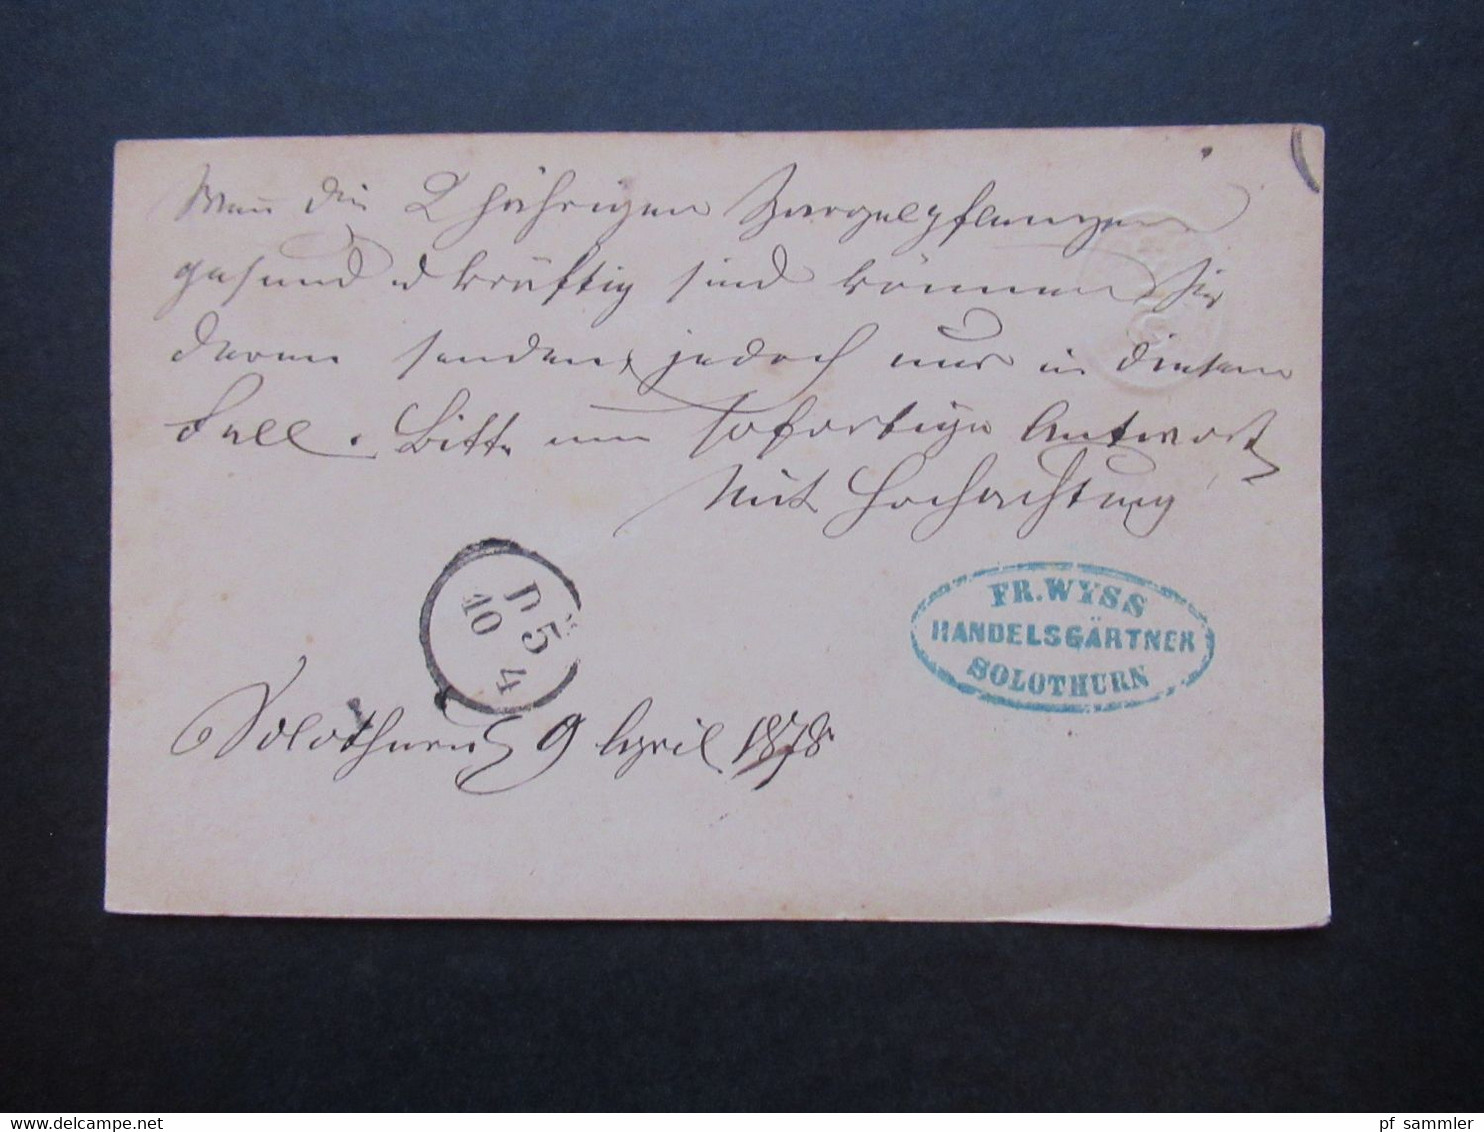 Wenn die 2 jährigen Spargelpflanzen
gesund & kräftig sind können Sie
davon senden, jedoch nur in diesem
Fall. Bitte um sofortige Antwort
Mit Hochachtung
FR. WYSS
HANDELSGÄRTNER
SOLOTHURN
10 4
Solothurn 9 April 1878
www.delcampe.net
pf_sammler